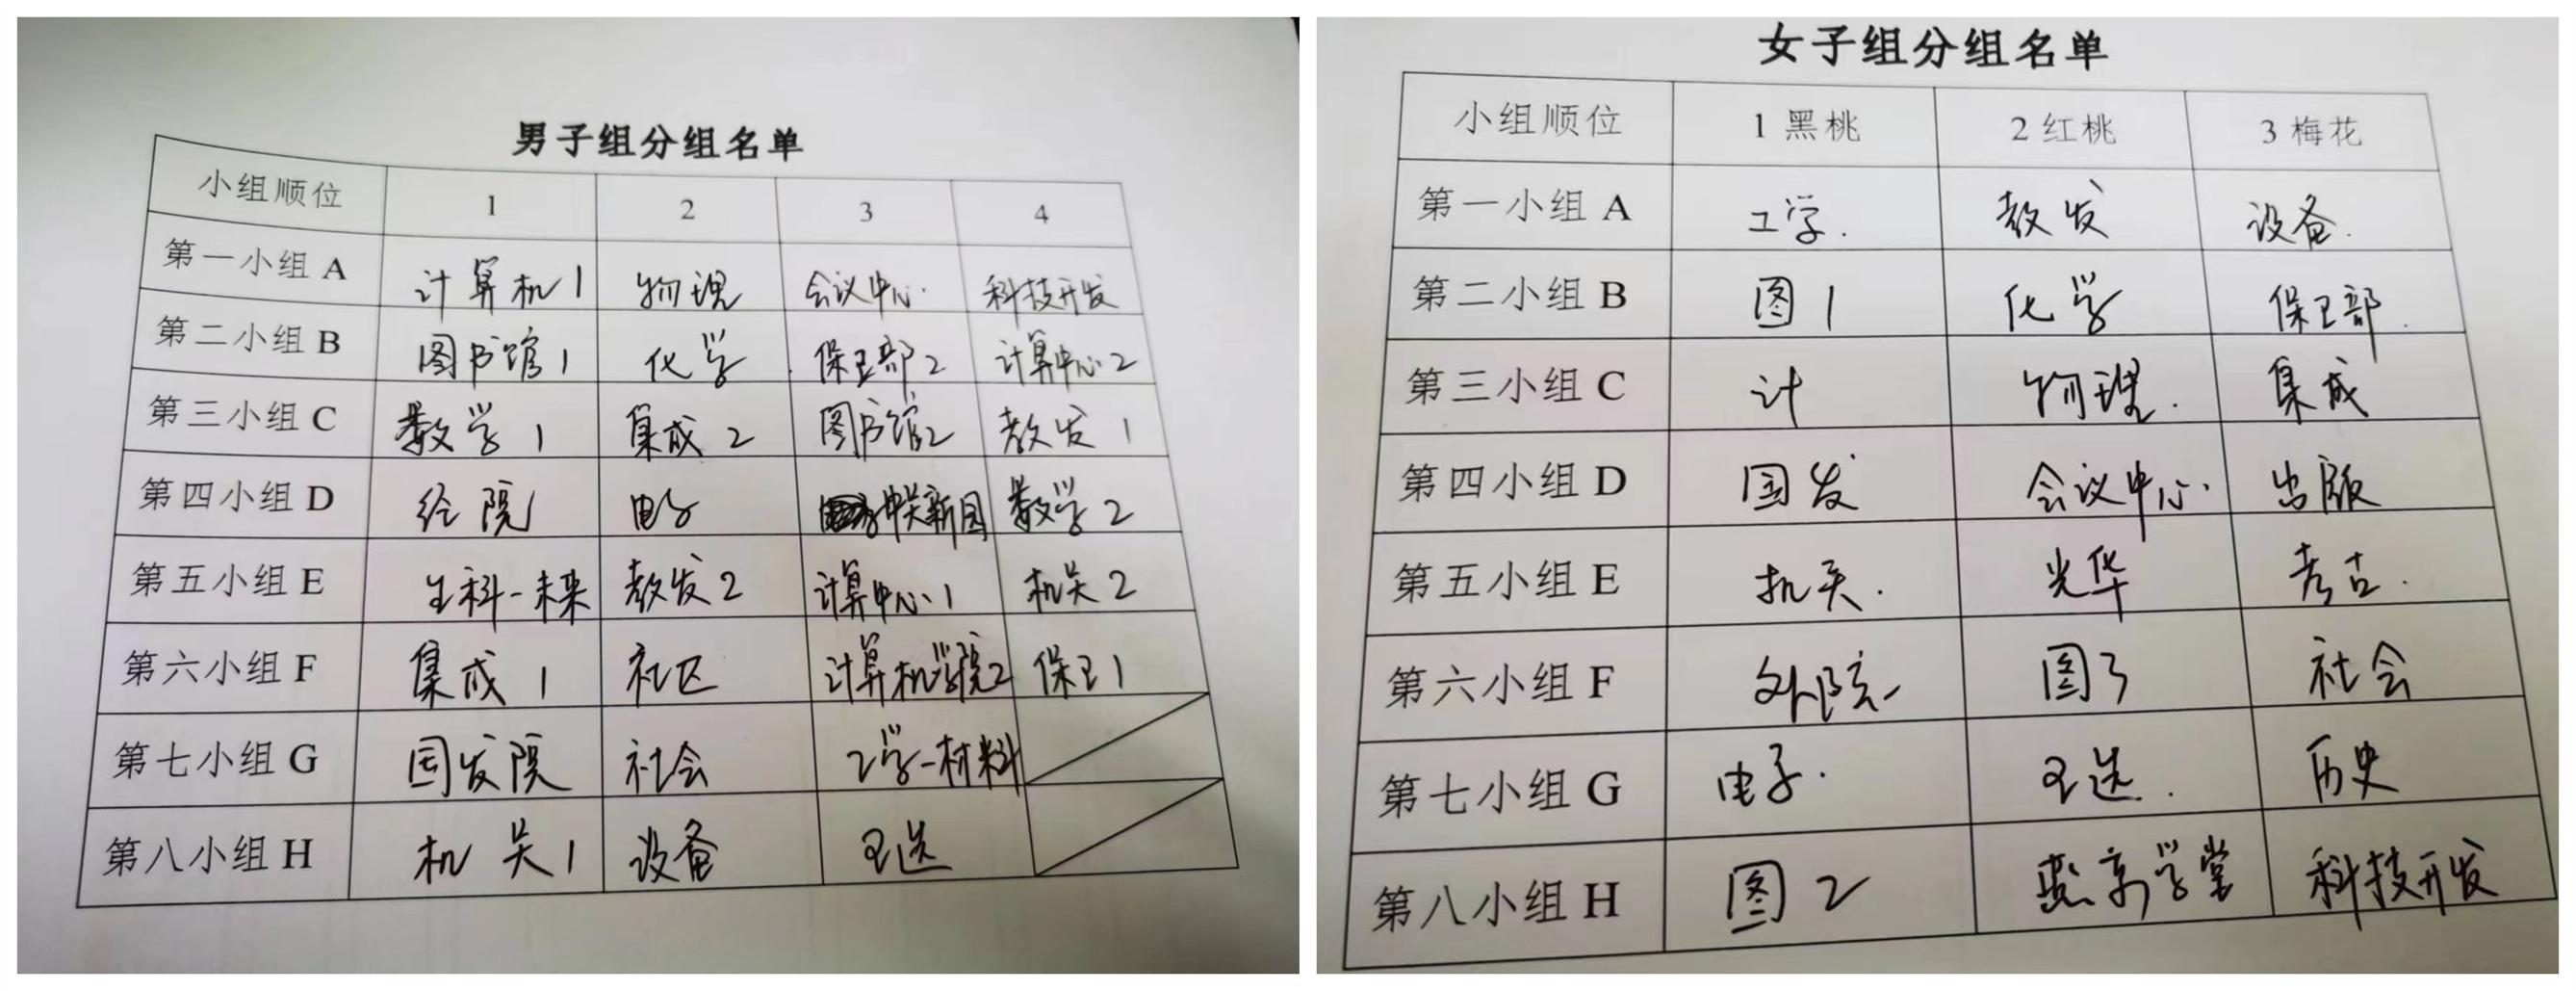 男子组分组名单
小组顺位 1 2 3 4
第一小组 A 计算机1 物理 会议中心 科技开发
第二小组 B 图书馆1 化学 保卫部2 计算中心2
第三小组 C 数学1 集成2 图书馆2 教发1
第四小组 D 经院 电子 中关新园 数学2
第五小组 E 生科-未来 教发2 计算中心1 机关2
第六小组 F 集成1 社区 计算机学院2 保卫1
第七小组 G 国发院 社会 工学-材料
第八小组 H 机关1 设备 王选
女子组分组名单
小组顺位 1 黑桃 2 红桃 3 梅花
第一小组 A 工学. 教发 设备.
第二小组 B 图1 化学 保卫部.
第三小组 C 计 物理. 集成
第四小组 D 国发 会议中心. 出版
第五小组 E 机关. 光华 考古.
第六小组 F 外院 图3 社会
第七小组 G 电子. 王选. 历史
第八小组 H 图2 燕京学堂 科技开发